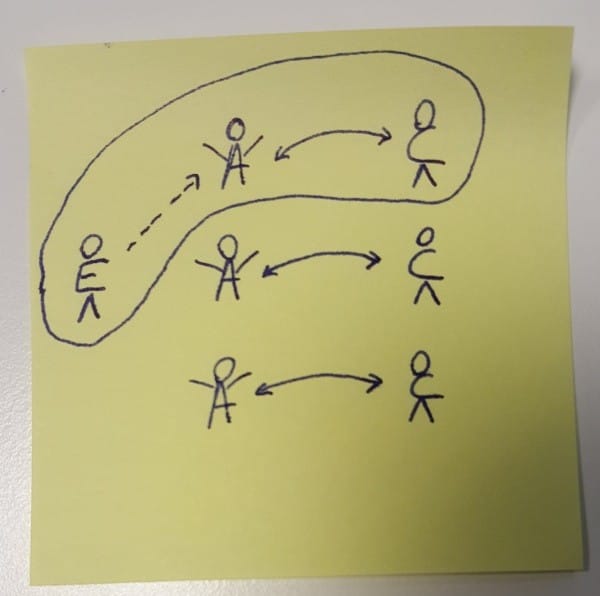 A C
E
A C
A C